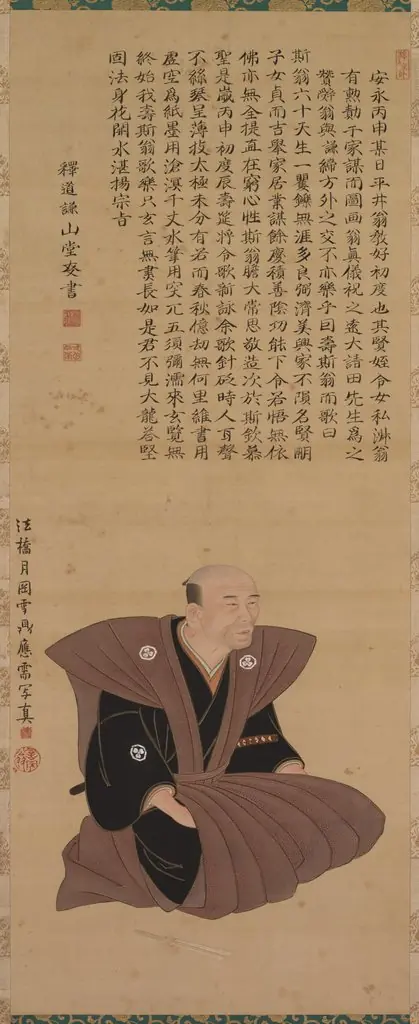 安永丙申某日平井翁敎好初度也其賢姪令女私淋翁
有勲勣于家謀而圖画翁眞儀祝之逶大請田先生爲之
贊辭翁與謙締方外之交不亦樂乎曰壽斯翁而歌曰
斯翁六十天生一矍鑠無涯多良弼濟美興家不隕名賢明
子女貞而吉聚家居業謀餘慶積善陰功能下令若悟無依
佛亦無全提直在窮心性斯翁膽大常思敬造次於斯欽慕
聖是嵗丙申初度辰壽筵將令歌新詠余歌針砭時人盲聾
不絲琴呈薄技太極未分有若而春秋億劫無何里維書用
虛空爲紙墨用滄溟千丈水筆用突兀五須彌濡來玄覽無
終始我壽斯翁歌樂只玄言無異長如是君不見大龍荅堅
固法身花開水湛揚宗旨
釋道謙山堂叜書
法橋月岡雪鼎應需写真